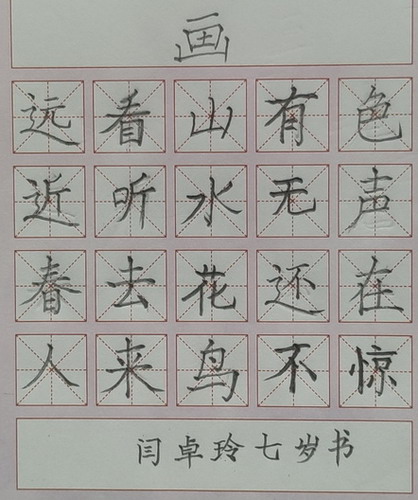 画
远看山有色
近听水无声
春去花还在
人来鸟不惊
闫卓玲七岁书